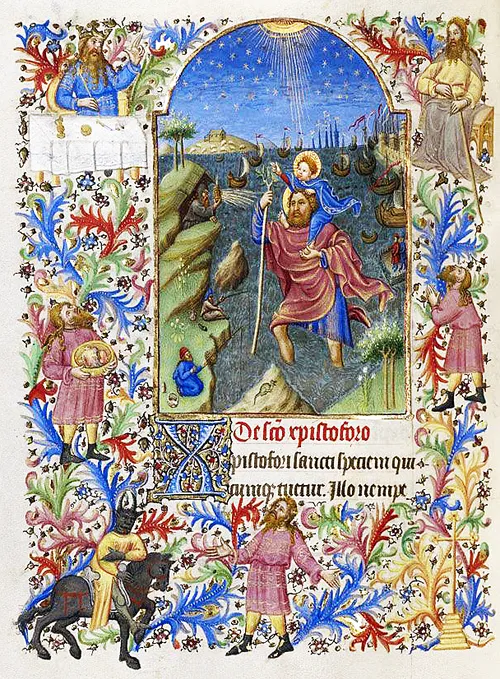 De sc̄o xpistoforo
Xpistofori sancti speciem qui
cumq; tuetur. Illo nempe